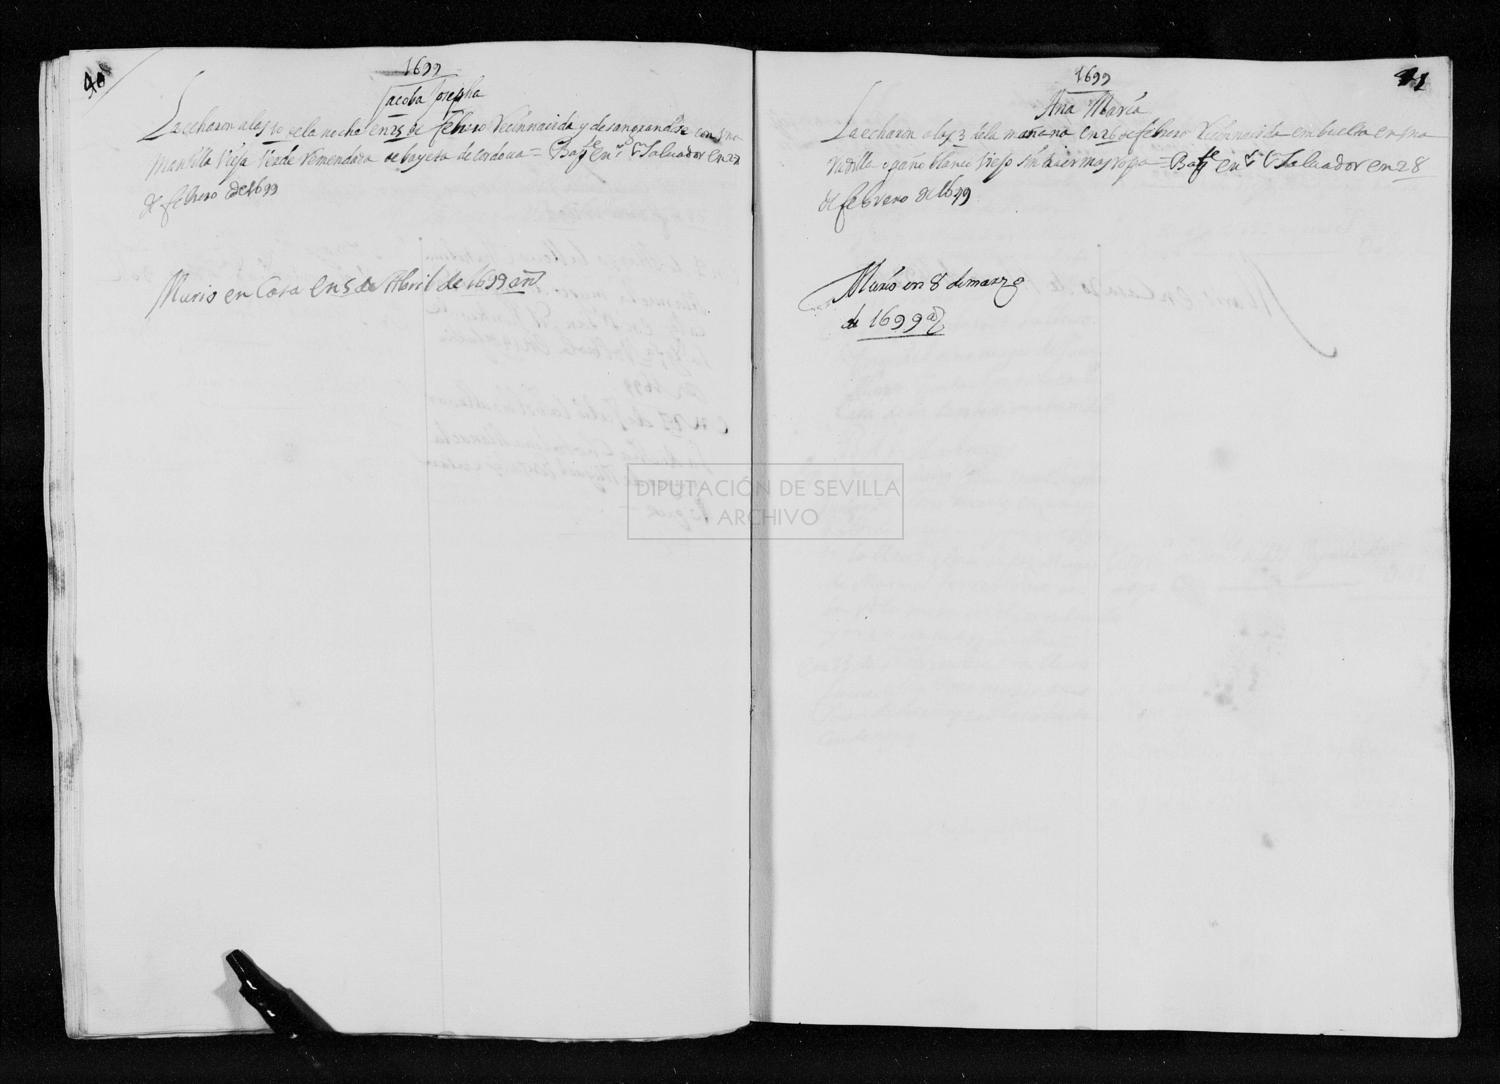 40
1699
Jacoba Josepha
La echaron a las 10 de la noche en 25 de febrero Recinnacida y desangrandose con Vna
Mantilla Vieja Verde Remendada de bayeta de cordoua = Bapte. en Sr. S. Saluador en 27
de febrero de 1699
Murio en Casa en 5 de Abril de 1699 as
41
1699
Ana Maria
La echaron a las 3 de la mañana en 26 de febrero Recinnacida embuelta en Vna
de paño blanco Viejo sin traer mas ropa = Bapte en Sr. S. Saluador en 28
de febrero de 1699
Murió en 8 de marzo
de 1699 as
DIPUTACIÓN DE SEVILLA
ARCHIVO